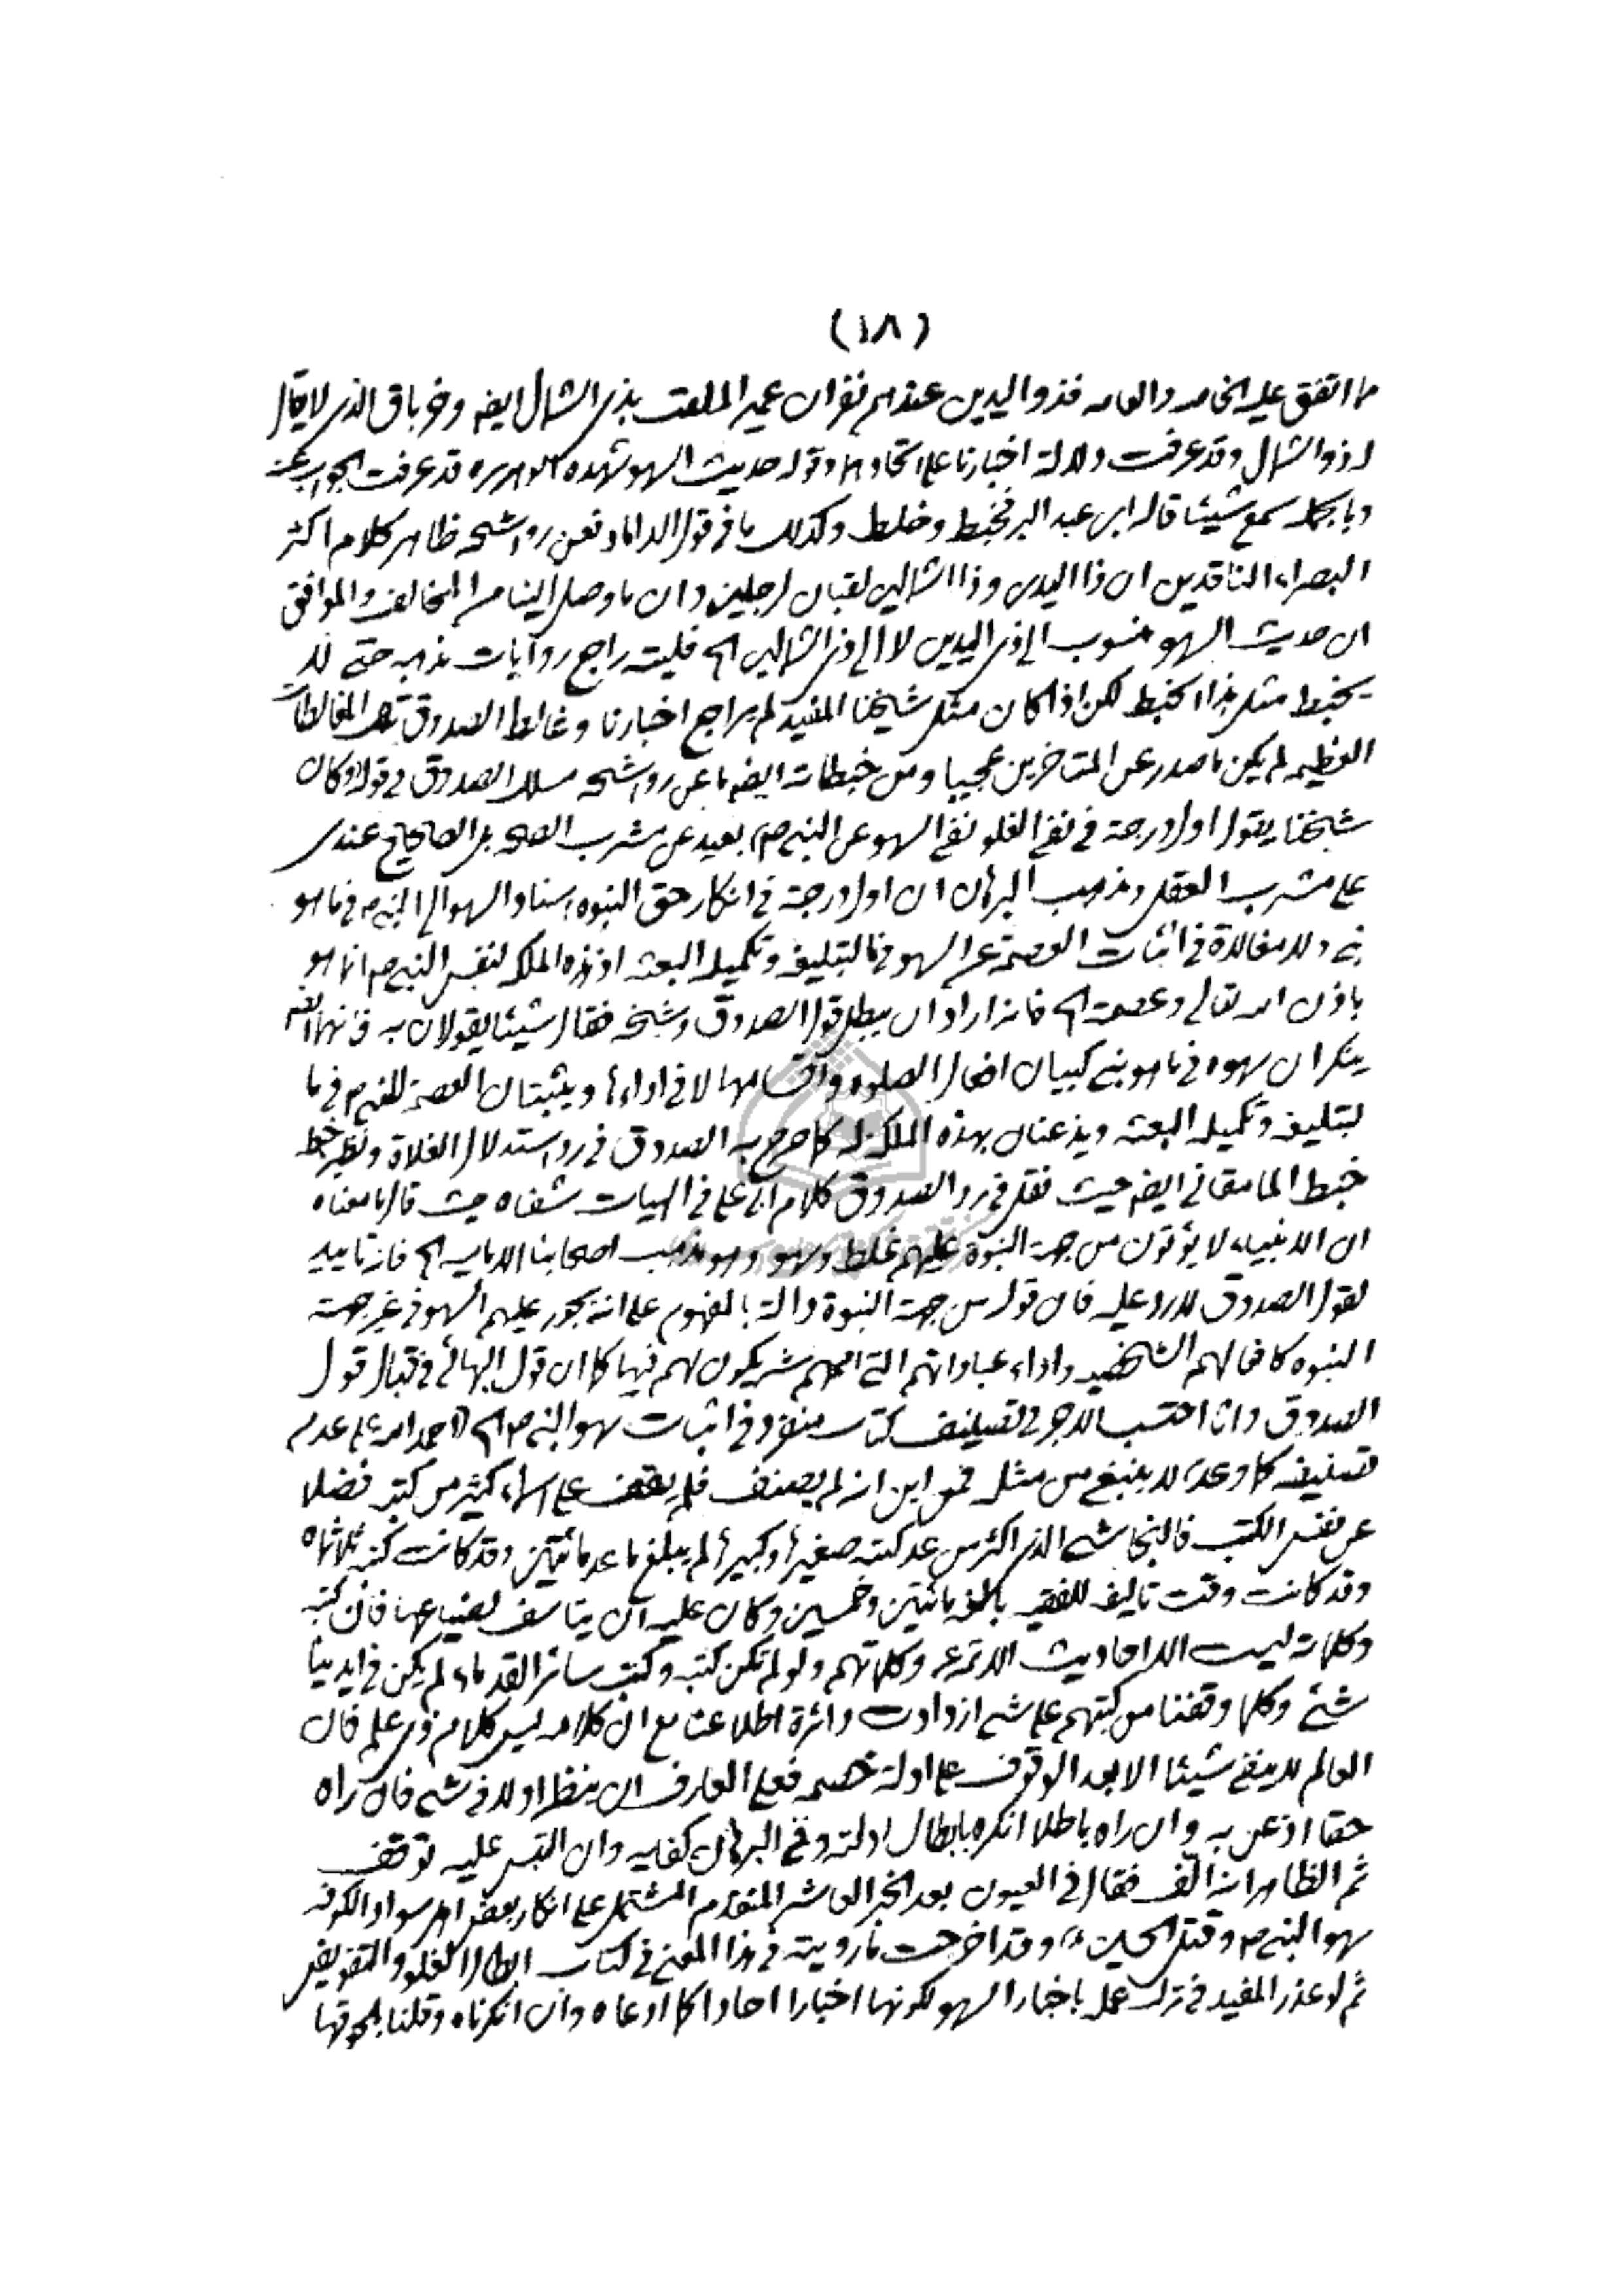 (١٨)
مما اتفق عليه الخاصه والعامه فذو اليدين عندهم نفران عمير الملقب بذى الشمال ايضه وخرباق الذى لا يقال
له ذو الشمال وقد عرفت دلالة اخبارنا على اتحادهما وقوله حديث السهو شهده ابو هريره قد عرفت الجواب عنه
وبالجمله سمع شيئا قاله ابن عبد البر فخبط وخلط وكذلك ما فى قول الداماد فعن رواشحه ظاهر كلام اكثر
البصراء الناقدين ان ذا اليدين وذا الشمالين لقبان لرجلين وان ما وصل الينا من المخالف والموافق
ان حديث السهو منسوب الى ذى اليدين لا الى ذى الشمالين الخ فليته راجع روايات مذهبه حتى لا
يخبط مثل هذا الخبط لكن اذا كان مثل شيخنا المفيد لم يراجع اخبارنا وغالط الصدوق تلك المغالطات
العظيمه لم يكن ما صدر عن المتاخرين عجيبا ومن خبطاته ايضه ما عن رواشحه مسلك الصدوق فى قوله وكان
شيخنا يقول اول درجة فى نفى الغلو نفى السهو عن النبى ص بعيد عن مشرب الصحه بل الصحيح عندى
على مشرب العقل ومذهب البرهان ان اول درجة فى انكار حق النبوه اسناد السهو الى النبى ص فيما هو
نبى ولا مغالاة فى اثبات العصمة عن السهو فيما لتبليغه وتكميله البعثه اذ هذه الملكه لنفس النبى ص انما هو
باذن الله تعالى وعصمته الخ فانه اراد ان يبطل قول الصدوق وشيخه فقال شيئا يقولان به فانهما ايضه
ينكران سهوه فيما هو نبى كبيان افعال الصلوه واقسامها لا فى اداءها ويثبتان العصمة للنبى ص فى ما
لتبليغه وتكميله البعثه ويذعنان بهذه الملكه له كما صرح به الصدوق فى رد استدلال الغلاة ونظير خبطه
خبط المامقانى ايضه حيث نقل فى رد الصدوق كلام ابى على فى الهيات شفاه حيث قال ما معناه
ان الانبياء لا يؤتون من جهة النبوة عليهم غلط وسهو وهو مذهب اصحابنا الاماميه الخ فانه تاييد
لقول الصدوق لا رد عليه فان قوله من جهة النبوة دالة بالمفهوم على انه يجوز عليهم السهو فى غير جهة
النبوه كافعالهم الشخصيه واداء عباداتهم التى اممهم شريكون لهم فيها كما ان قول البهائى فى قبال قول
الصدوق وانا احتسب الاجر فى تصنيف كتاب منفرد فى اثبات سهو النبى ص الخ احمد الله على عدم
تصنيفه كما وعد لا ينبغى من مثله فمن اين انه لم يصنف فلم يقف على اسماء كثير من كتبه فضلا
عن نفس الكتب فالنجاشى الذى اكثر من عد كتبه صغيرا وكبيرا لم يبلغ ما عد مائتين وقد كانت كتبه ثلثماه
وقد كانت وقت تاليفه للفقيه بالغه مائتين وخمسين وكان عليه ان يتاسف لضياعها فان كتبه
وكلماته ليست الا احاديث الائمة ع وكلماتهم ولو لم تكن كتبه وكتب سائر القدماء لم يكن فى ايدينا
شئ وكلما وقفنا من كتبهم على شى ازدادت دائرة اطلاعنا مع ان كلامه ليس كلام ذى علم فان
العالم لا ينفى شيئا الا بعد الوقوف على ادلة خصمه فعلى العارف ان ينظر اولا فى شى فان راه
حقا اذعن به وان راه باطلا انكره بابطال ادلته وفى البرهان كفايه وان التبس عليه توقف
ثم الظاهر انه الف فقال فى العيون بعد الخبر العاشر المتقدم المشتمل على انكار بعض اهل سواد الكوفه
سهو النبى ص وقتل الحسين ع وقد اخرجت ما رويته فى هذا المعنى فى كتاب ابطال الغلو والتفويض
ثم لو عذر المفيد فى ترك عمله باخبار السهو لكونها اخبارا احادا كما ادعاه وان انكرناه وقلنا بلحوقها